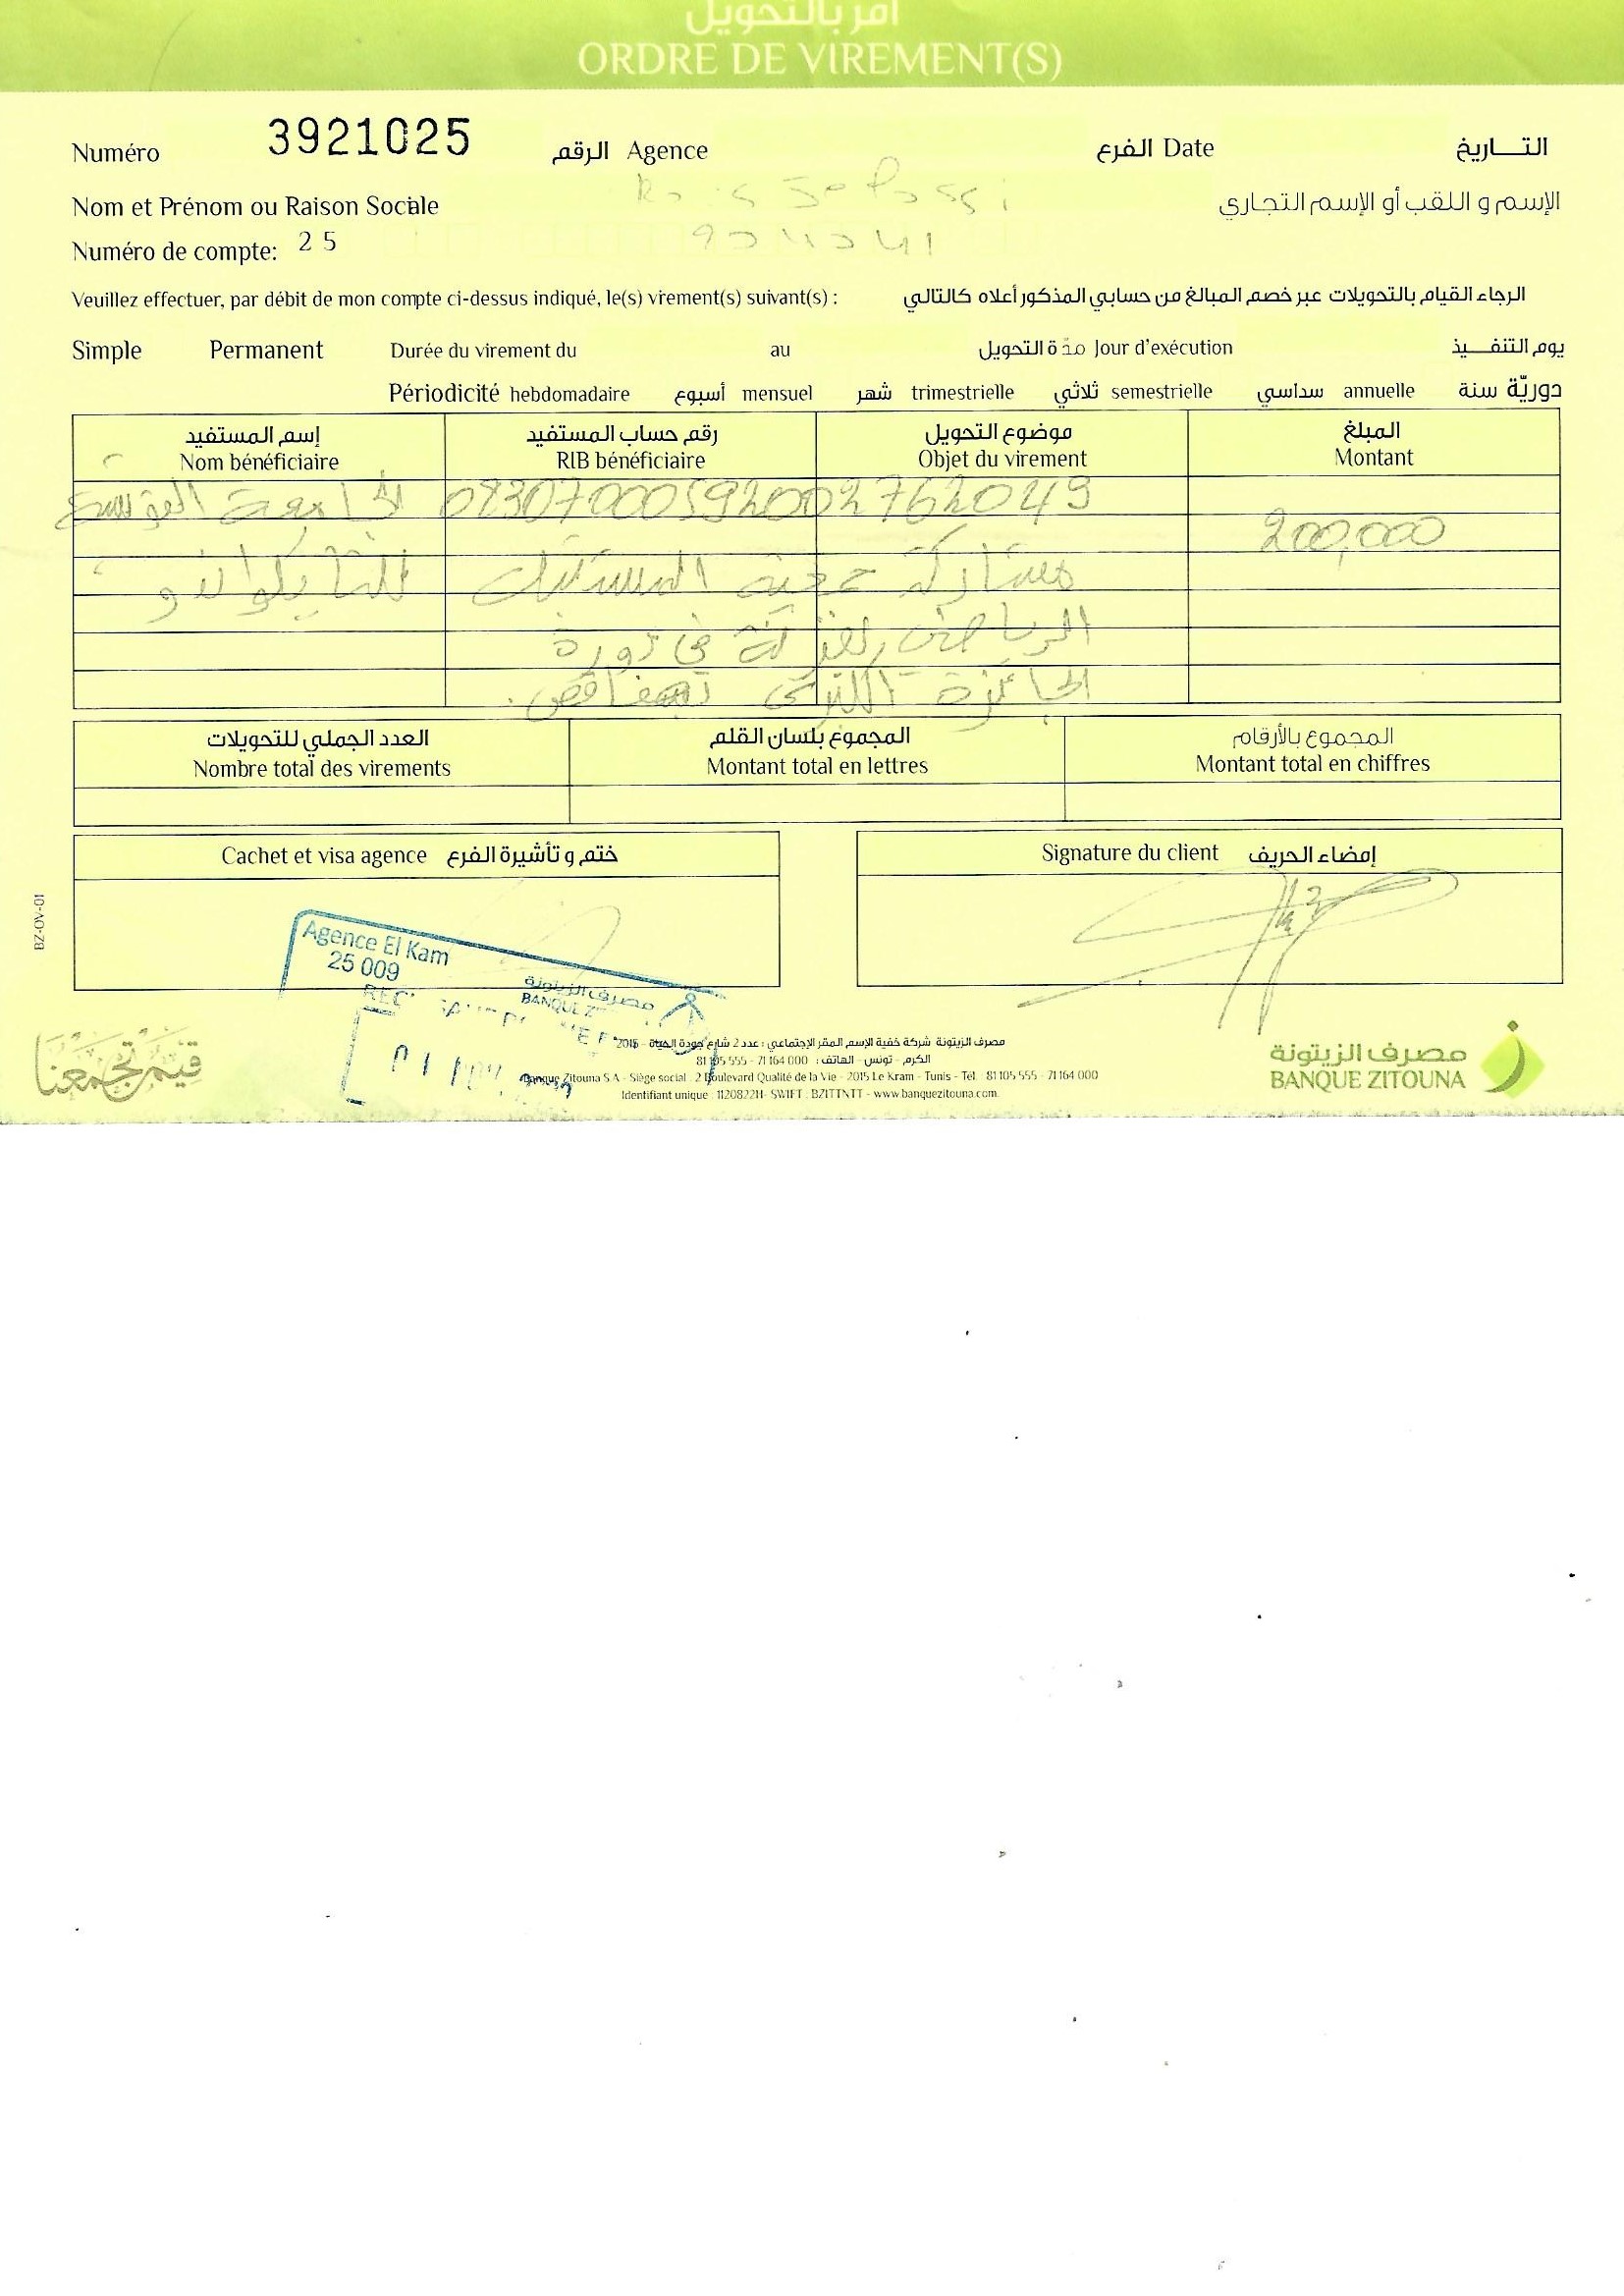 أمر بالتحويل
ORDRE DE VIREMENT(S)
Numéro 3921025 الرقم Agence الفرع Date التـــاريخ
Nom et Prénom ou Raison Sociale الإسم و اللقب أو الإسم التجاري
Numéro de compte: 2 5
Veuillez effectuer, par débit de mon compte ci-dessus indiqué, le(s) vrement(s) suivant(s) : الرجاء القيام بالتحويلات عبر خصم المبالغ من حسابي المذكور أعلاه كالتالي
Simple Permanent Durée du virement du au مدّة التحويل Jour d'exécution يوم التنفـــيذ
Périodicité hebdomadaire أسبوع mensuel شهر trimestrielle ثلاثي semestrielle سداسي annuelle دوريّة سنة
إسم المستفيد رقم حساب المستفيد موضوع التحويل المبلغ
Nom bénéficiaire RIB bénéficiaire Objet du virement Montant
الجامعة التونسية
200,000
للتايكواندو مشاركة جمعية
الرياضي في دورة
الجائزة الكبرى بصفاقص.
العدد الجملي للتحويلات المجموع بلسان القلم المجموع بالأرقام
Nombre total des virements Montant total en lettres Montant total en chiffres
Cachet et visa agence ختم و تأشيرة الفرع Signature du client إمضاء الحريف
BZ-OV-01
Agence El Kram
25 009
مصرف الزيتونة
BANQUE
قيم تجمعنا
مصرف الزيتونة شركة خفية الإسم المقر الإجتماعي : عدد 2 شارع جودة الحياة - 2015
الكرم - تونس - الهاتف : 71 164 000 - 81 105 555
Banque Zitouna S.A - Siège social : 2 Boulevard Qualité de la Vie - 2015 Le Kram - Tunis - Tél. : 81 105 555 - 71 164 000
Identifiant unique : 1120822H- SWIFT : BZITTNTT - www.banquezitouna.com
مصرف الزيتونة
BANQUE ZITOUNA